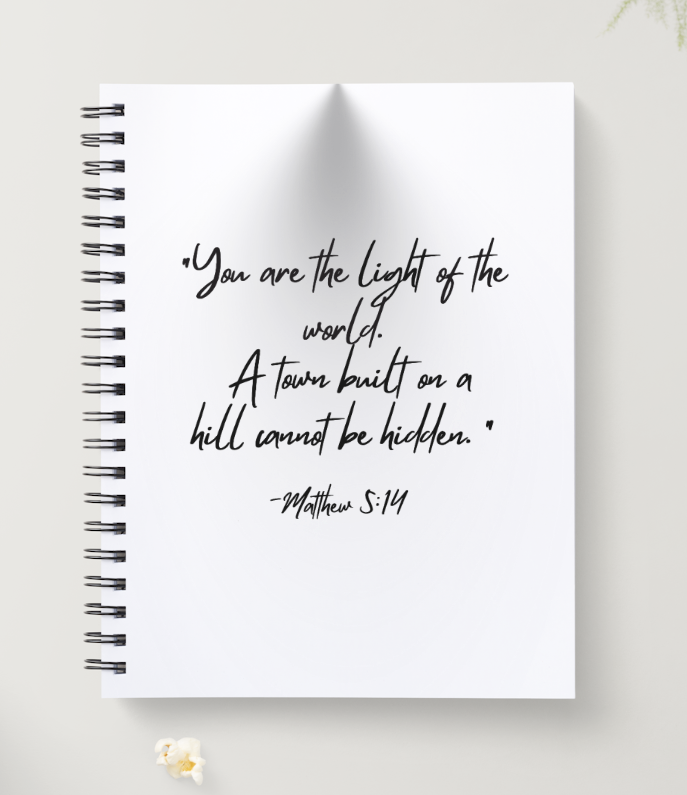 "You are the light of the
world.
A town built on a
hill cannot be hidden. "
-Matthew 5:14